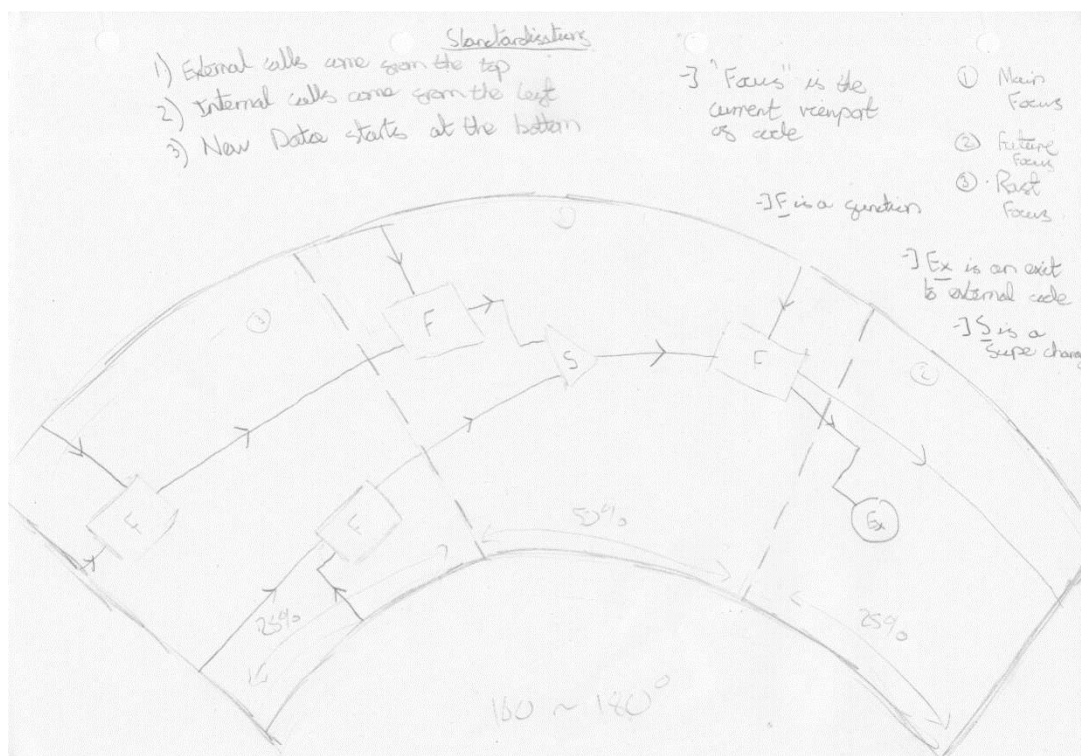 Standardisations
1) External calls come from the top
2) Internal calls come from the left
3) New Data starts at the bottom
-] "Focus" is the
current viewport
of code
① Main
Focus
② Future
Focus
③ Past
Focus
-] F is a function
-] Ex is an exit
to external code
-] S is a
①
③
②
F
S
F
F
F
Ex
50%
25%
25%
180°